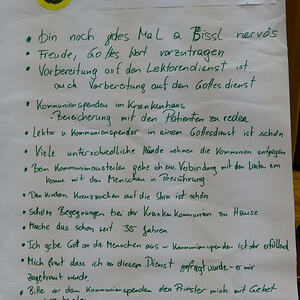 • Bin noch jedes Mal a Bissl nervös
• Freude, Gottes Wort vorzutragen
• Vorbereitung auf den Lektorendienst ist
auch Vorbereitung auf den Gottesdienst
• Kommunionspenden im Krankenhaus
- Bereicherung mit den Patienten zu reden
• Lektor u. Kommunionspender in einem Gottesdienst ist schön
• Viele unterschiedliche Hände nehmen die Kommunion entgegen
• Beim Kommunionausteilen gehe ich eine Verbindung mit den Leuten ein
komme mit den Menschen in Berührung
• Den Kindern Kreuzzeichen auf die Stirn ist schön
• Schöne Begegnungen bei der Kranken Kommunion zu Hause
• Mache das schon seit 35 Jahren
• Ich gebe Gott an die Menschen aus - Kommunionspenden ist sehr erfüllend
• Mich freut dass ich zu diesem Dienst gefragt wurde - es mir
zugetraut wurde
• Bitte vor dem Kommunionspenden den Priester mich mit Gebet